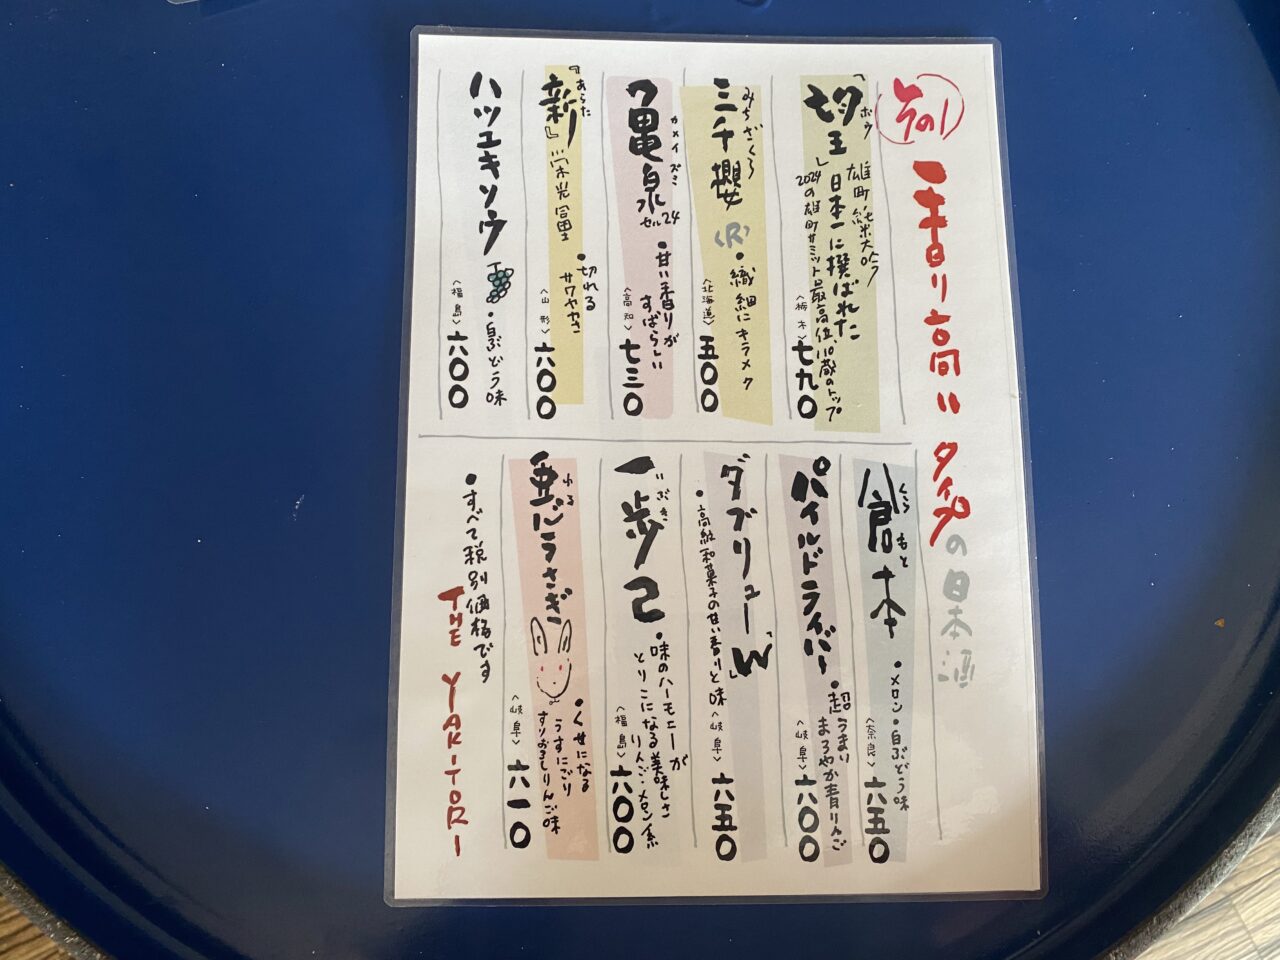 その1
香り高いタイプの日本酒
「望王」
ボウ
雄町純米大吟
日本一に撰ばれた
2024の雄町サミット最高位、110蔵のトップ
〈栃木〉七九〇
三千櫻
みちざくら
〈R〉
・繊細にキラメク
〈北海道〉五〇〇
亀泉
カメイズミ
セル24
・甘い香りが
すばらしい
〈高知〉七三〇
『新』
あらた
栄光冨士
・切れる
サワヤカさ
〈山形〉六〇〇
ハツユキソウ
・白ぶどう味
〈福島〉六〇〇
倉本
くらもと
・メロン・白ぶどう味
〈奈良〉六五〇
パイルドライバー
・超うまい
まろやか青りんご
〈岐阜〉六〇〇
ダブリュー「W」
・高級和菓子の甘い香りと味
〈岐阜〉六五〇
一歩己
いぶき
・味のハーモニーが
とりこになる美味しさ
りんご・メロン系
〈福島〉六〇〇
亜どうさぎ
・くせになる
うすにごり
すりおろしりんご味
〈岐阜〉六一〇
・すべて税別価格です
THE YAKITORI